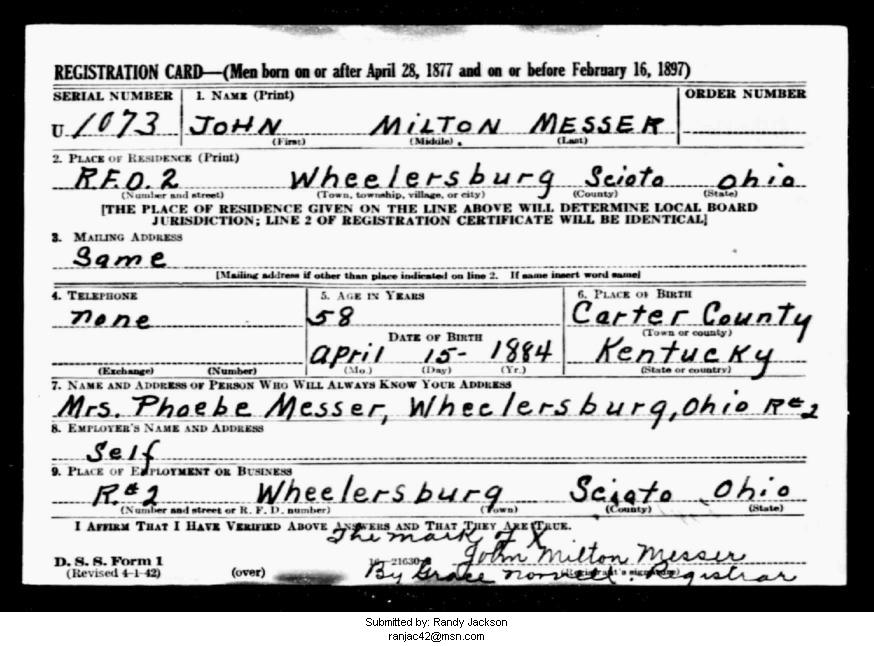 REGISTRATION CARD—(Men born on or after April 28, 1877 and on or before February 16, 1897)
SERIAL NUMBER 1. NAME (Print) ORDER NUMBER
U 1073 JOHN MILTON MESSER
(First) (Middle) (Last)
2. PLACE OF RESIDENCE (Print)
R.F.D. 2 Wheelersburg Scioto Ohio
(Number and street) (Town, township, village, or city) (County) (State)
[THE PLACE OF RESIDENCE GIVEN ON THE LINE ABOVE WILL DETERMINE LOCAL BOARD
JURISDICTION; LINE 2 OF REGISTRATION CERTIFICATE WILL BE IDENTICAL]
3. MAILING ADDRESS
Same
[Mailing address if other than place indicated on line 2. If same insert word same]
4. TELEPHONE 5. AGE IN YEARS 6. PLACE OF BIRTH
none 58 Carter County
DATE OF BIRTH (Town or county)
April 15- 1884 Kentucky
(Exchange) (Number) (Mo.) (Day) (Yr.) (State or country)
7. NAME AND ADDRESS OF PERSON WHO WILL ALWAYS KNOW YOUR ADDRESS
Mrs. Phoebe Messer, Wheelersburg, Ohio R#2
8. EMPLOYER'S NAME AND ADDRESS
Self
9. PLACE OF EMPLOYMENT OR BUSINESS
R.#2 Wheelersburg Scioto Ohio
(Number and street or R. F. D. number) (Town) (County) (State)
I AFFIRM THAT I HAVE VERIFIED ABOVE ANSWERS AND THAT THEY ARE TRUE.
The mark of X
John Milton Messer
D. S. S. Form 1 16—21630
(Revised 4-1-42) (over) By Grace (Registrant's signature) Registrar
Submitted by: Randy Jackson
ranjac42@msn.com